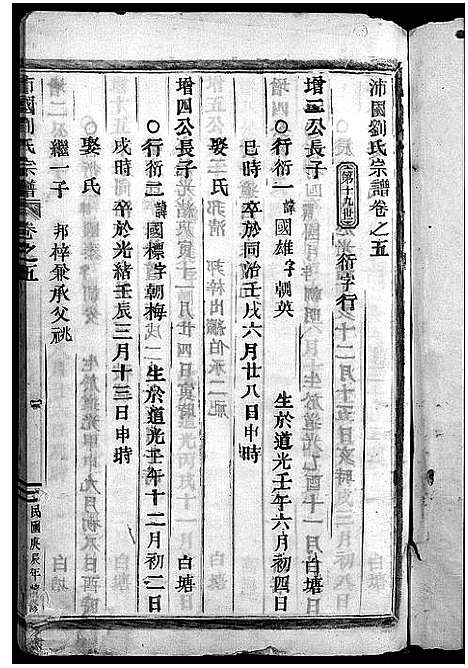 沛國劉氏宗譜卷之五
第十九世 衍字行
增三公長子
○行衍一 諱國雄字朝英 生於道光壬午六月初四日
巳時 卒於同治壬戌六月廿八日申時 白塘
娶氏
增四公長子
○行衍二 諱國標字朝梅 生於道光壬午十二月初二日
戌時 卒於光緒壬辰三月十三日申時 白塘
娶氏
繼一子 邦梓兼承父祧
沛國劉氏宗譜 卷之五
民國庚辰年